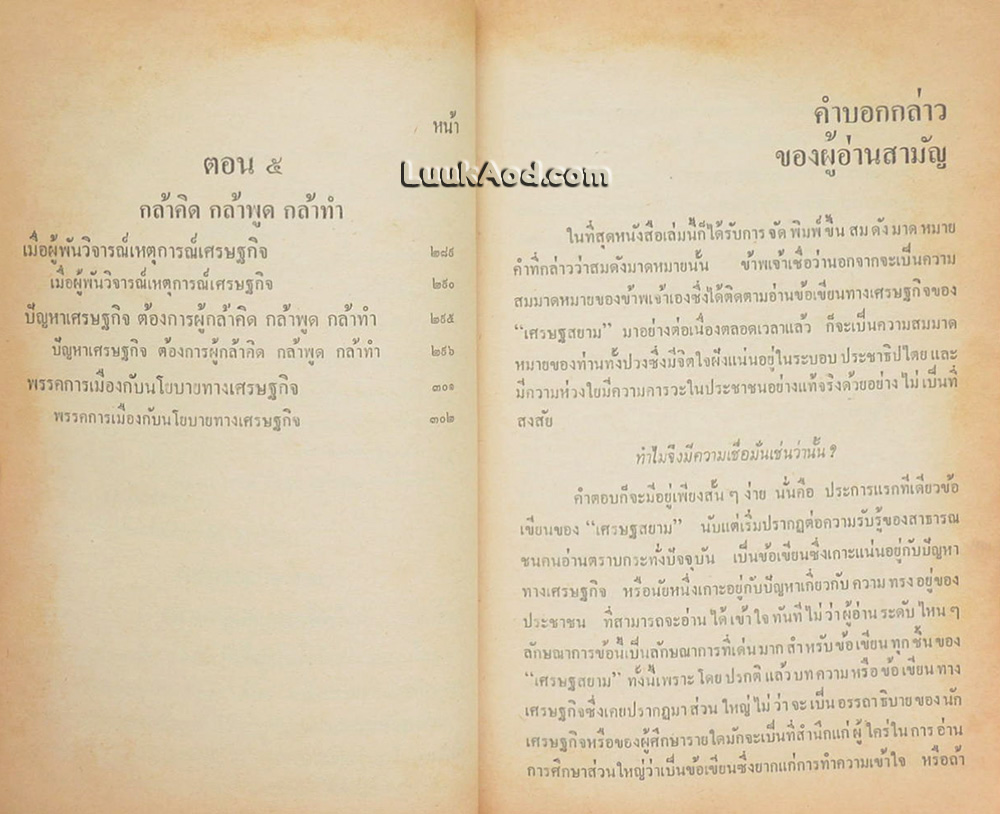 หน้า
ตอน ๕
กล้าคิด กล้าพูด กล้าทำ
เมื่อผู้พันวิจารณ์เหตุการณ์เศรษฐกิจ ๒๘๙
เมื่อผู้พันวิจารณ์เหตุการณ์เศรษฐกิจ ๒๙๐
ปัญหาเศรษฐกิจ ต้องการผู้กล้าคิด กล้าพูด กล้าทำ ๒๙๕
ปัญหาเศรษฐกิจ ต้องการผู้กล้าคิด กล้าพูด กล้าทำ ๒๙๖
พรรคการเมืองกับนโยบายทางเศรษฐกิจ ๓๐๑
พรรคการเมืองกับนโยบายทางเศรษฐกิจ ๓๐๒
LuukAod.com
คำบอกกล่าว
ของผู้อ่านสามัญ
ในที่สุดหนังสือเล่มนี้ก็ได้รับการ จัด พิมพ์ ขึ้น สม ดัง มาด หมาย
คำที่กล่าวว่าสมดังมาดหมายนั้น ข้าพเจ้าเชื่อว่านอกจากจะเป็นความ
สมมาดหมายของข้าพเจ้าเองซึ่งได้ติดตามอ่านข้อเขียนทางเศรษฐกิจของ
“เศรษฐสยาม” มาอย่างต่อเนื่องตลอดเวลาแล้ว ก็จะเป็นความสมมาด
หมายของท่านทั้งปวงซึ่งมีจิตใจฝังแน่นอยู่ในระบอบ ประชาธิปไตย และ
มีความห่วงใยมีความคารวะในประชาชนอย่างแท้จริงด้วยอย่าง ไม่ เป็นที่
สงสัย
ทำไมจึงมีความเชื่อมั่นเช่นว่านั้น ?
คำตอบก็จะมีอยู่เพียงสั้น ๆ ง่าย นั่นคือ ประการแรกทีเดียวข้อ
เขียนของ “เศรษฐสยาม” นับแต่เริ่มปรากฏต่อความรับรู้ของสาธารณ
ชนคนอ่านตราบกระทั่งปัจจุบัน เป็นข้อเขียนซึ่งเกาะแน่นอยู่กับปัญหา
ทางเศรษฐกิจ หรือนัยหนึ่งเกาะอยู่กับปัญหาเกี่ยวกับ ความ ทรง อยู่ของ
ประชาชน ที่สามารถจะอ่าน ได้ เข้า ใจ ทันที ไม่ ว่า ผู้อ่าน ระดับ ไหน ๆ
ลักษณาการข้อนี้เป็นลักษณาการที่เด่น มาก สำ หรับ ข้อ เขียน ทุก ชิ้น ของ
“เศรษฐสยาม” ทั้งนี้เพราะ โดย ปรกติ แล้ว บท ความ หรือ ข้อ เขียน ทาง
เศรษฐกิจซึ่งเคยปรากฏมา ส่วน ใหญ่ ไม่ ว่า จะ เป็น อรรถา ธิบาย ของ นัก
เศรษฐกิจหรือของผู้ศึกษารายใดมักจะเป็นที่สำนึกแก่ ผู้ ใคร่ ใน การ อ่าน
การศึกษาส่วนใหญ่ว่าเป็นข้อเขียนซึ่งยากแก่การทำความเข้าใจ หรือถ้า